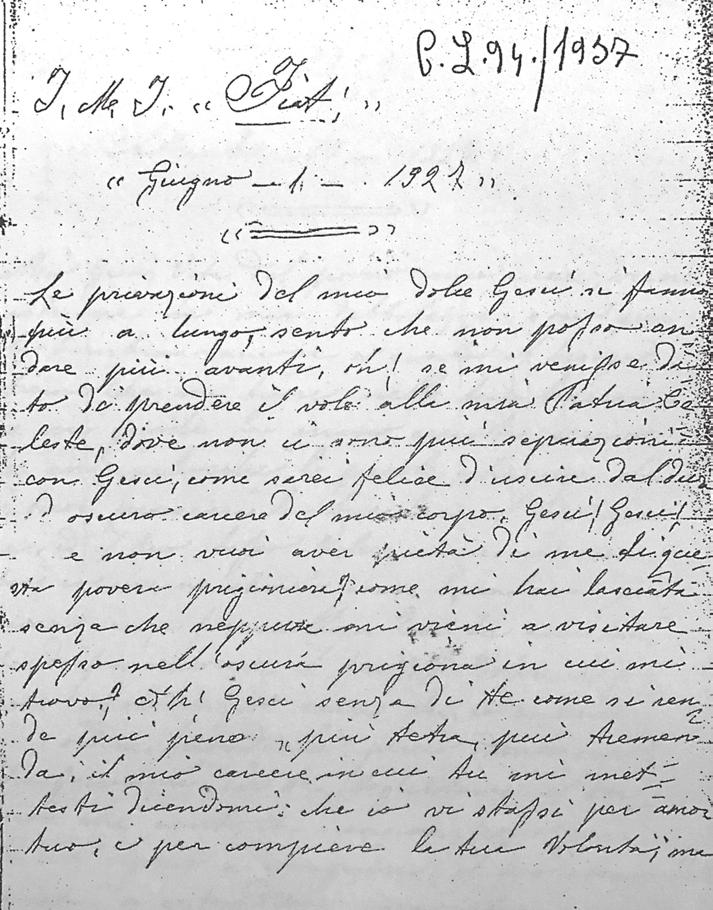 C. L. 94./1937
J. M. J. « Fiat! »
« Giugno - 1 - 1927 »
Le privazioni del mio dolce Gesù si fanno
più a lungo, sento che non posso an
dare più avanti, oh! se mi venisse di
to di prendere il volo alla mia Patria Ce
leste, dove non ci sono più separazioni
con Gesù, come sarei felice d'uscire dal duro
d oscuro carcere del mio corpo. Gesù! Gesù!
e non vuoi aver pietà di me di que
sta povera prigioniera? come mi hai lasciata
senza che neppure mi vieni a visitare
spesso nell'oscura prigiona in cui mi
trovo? oh! Gesù senza di te come si ren
de più più tetra, più tremen
da, il mio carcere in cui tu mi met
testi dicendomi: che io vi stassi per amor
tuo, e per compiere la tua Volontà; ma